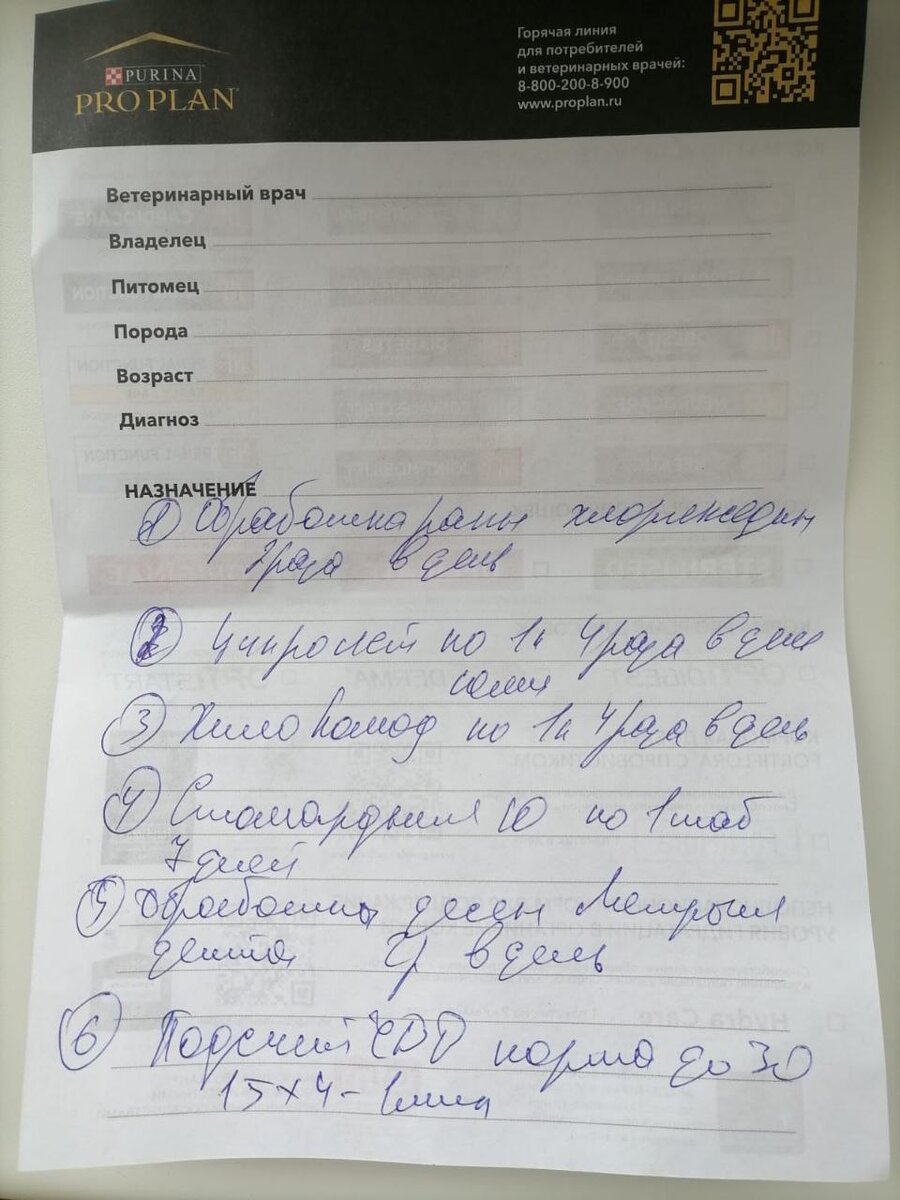 PURINA
PRO PLAN
Горячая линия
для потребителей
и ветеринарных врачей:
8-800-200-8-900
www.proplan.ru
Ветеринарный врач
Владелец
Питомец
Порода
Возраст
Диагноз
НАЗНАЧЕНИЕ
1) Обработка раны хлоргексидин
2 раза в день
2 Ципролет по 1к 4 раза в день
3 Хило Комод по 1к 4 раза в день
4 Стоморджил 10 по 1 таб
7 дней
5 Обработка десен Метрогил
дента 2р в день
6 Подсчет ЧДД норма до 30
15 х 4 - 1 мин